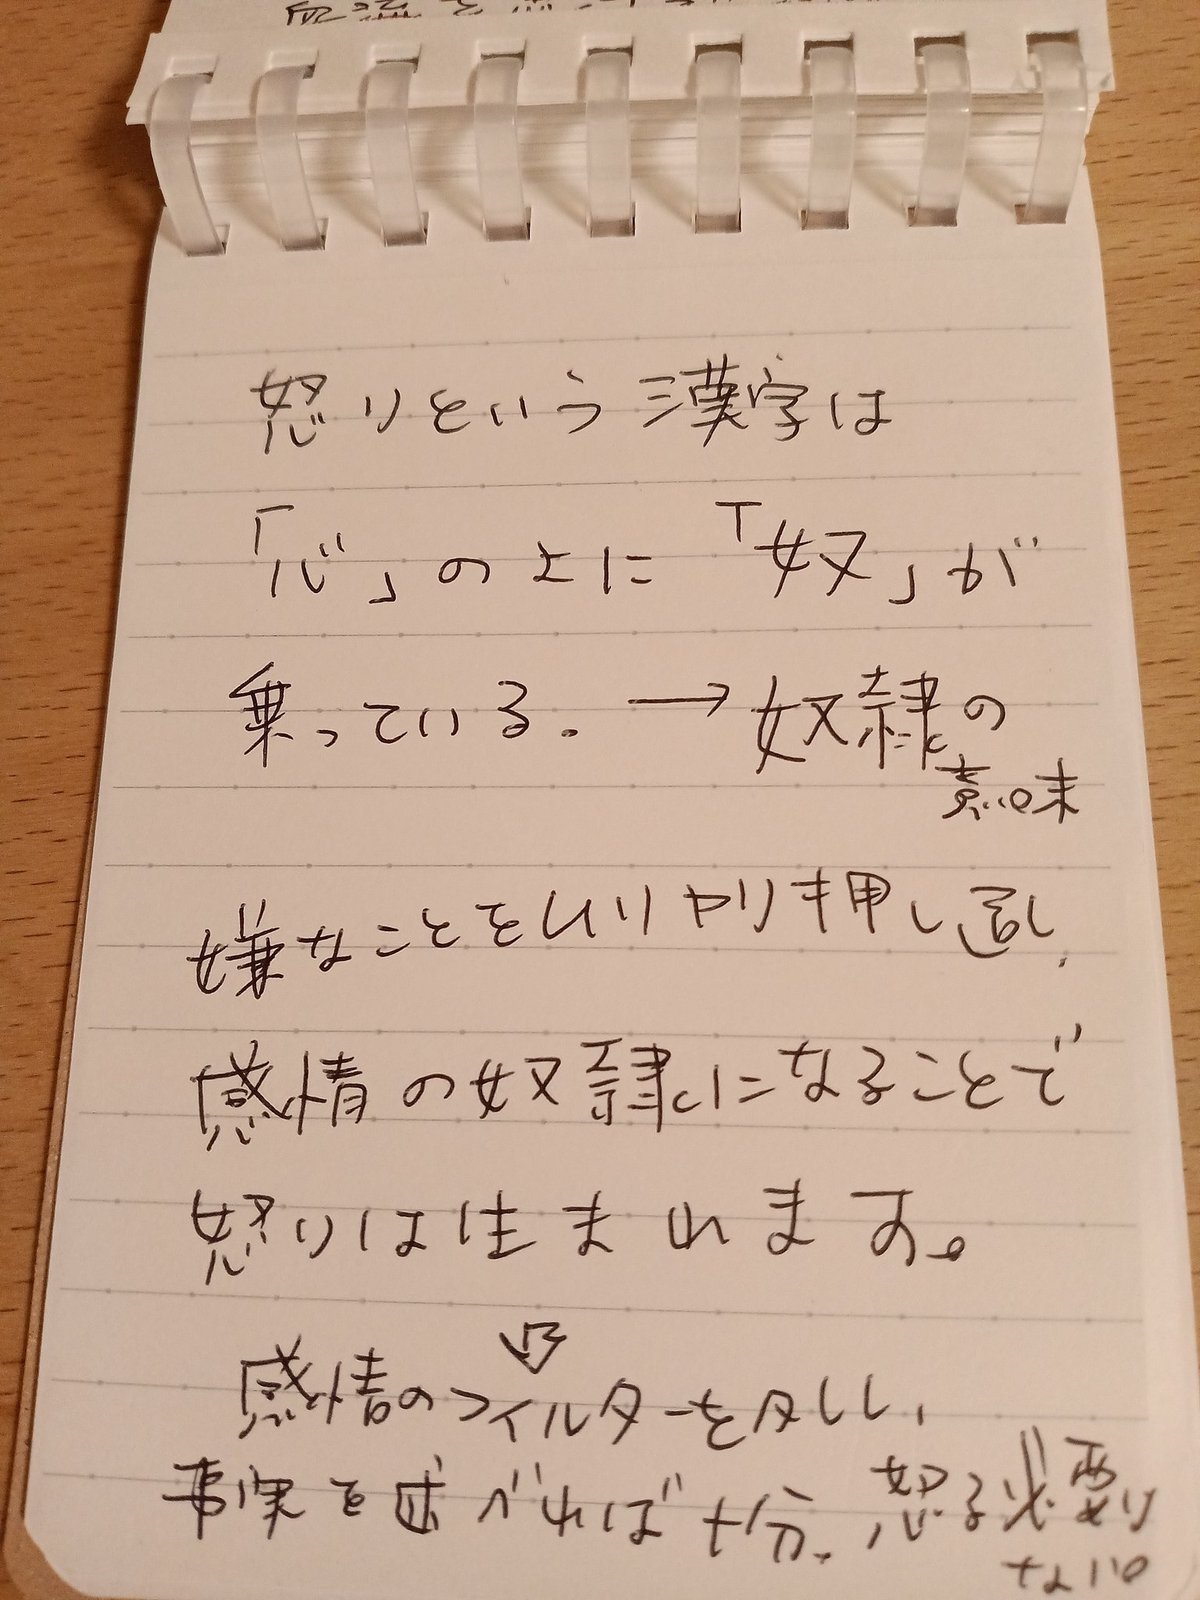 怒りという漢字は
「心」の上に「奴」が
乗っている。→奴隷の
意味
嫌なことをムリヤリ押し通し、
感情の奴隷になることで
怒りは生まれます。
感情のフィルターを外し、
事実を述べれば十分。怒る必要
ない。